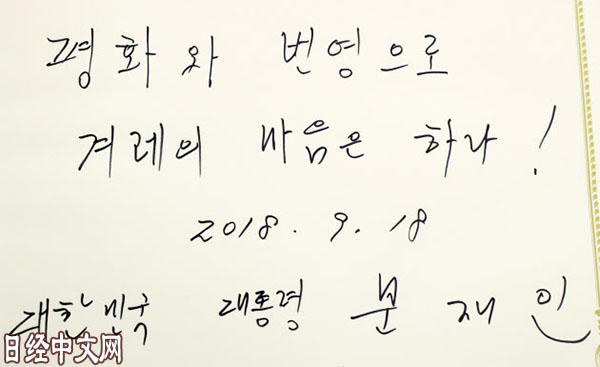 평화와 번영으로
겨레의 마음은 하나!
2018. 9. 18
대한민국 대통령 문재인
日经中文网